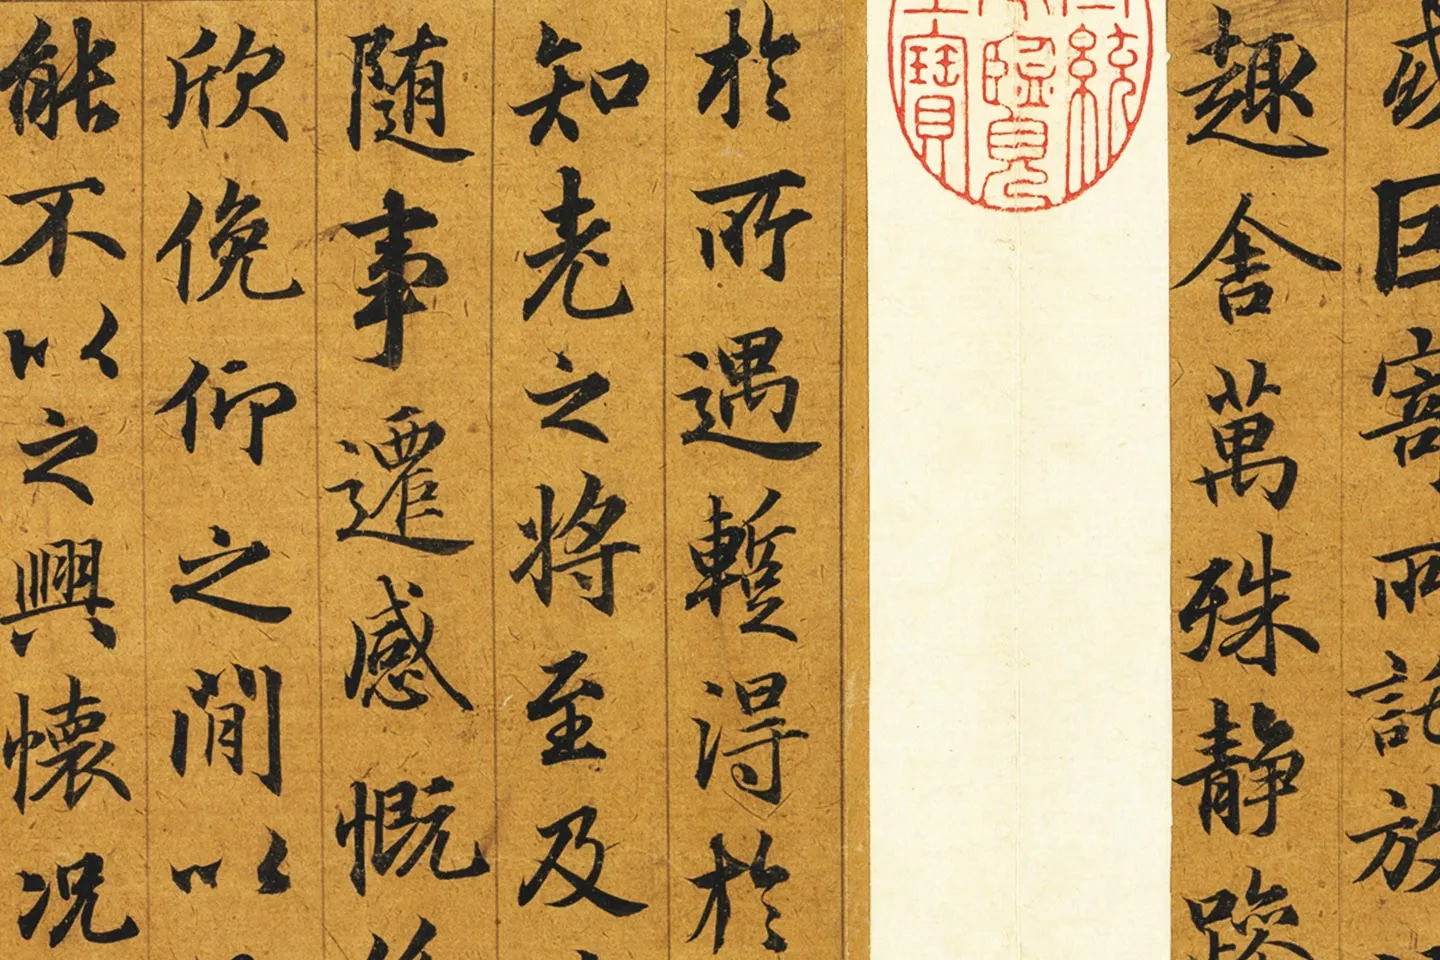 或因寄所託放
趣舍萬殊静躁
統
覽
寶
於所遇蹔得於
知老之将至及
随事遷感慨
欣俛仰之閒以
能不以之興懷况